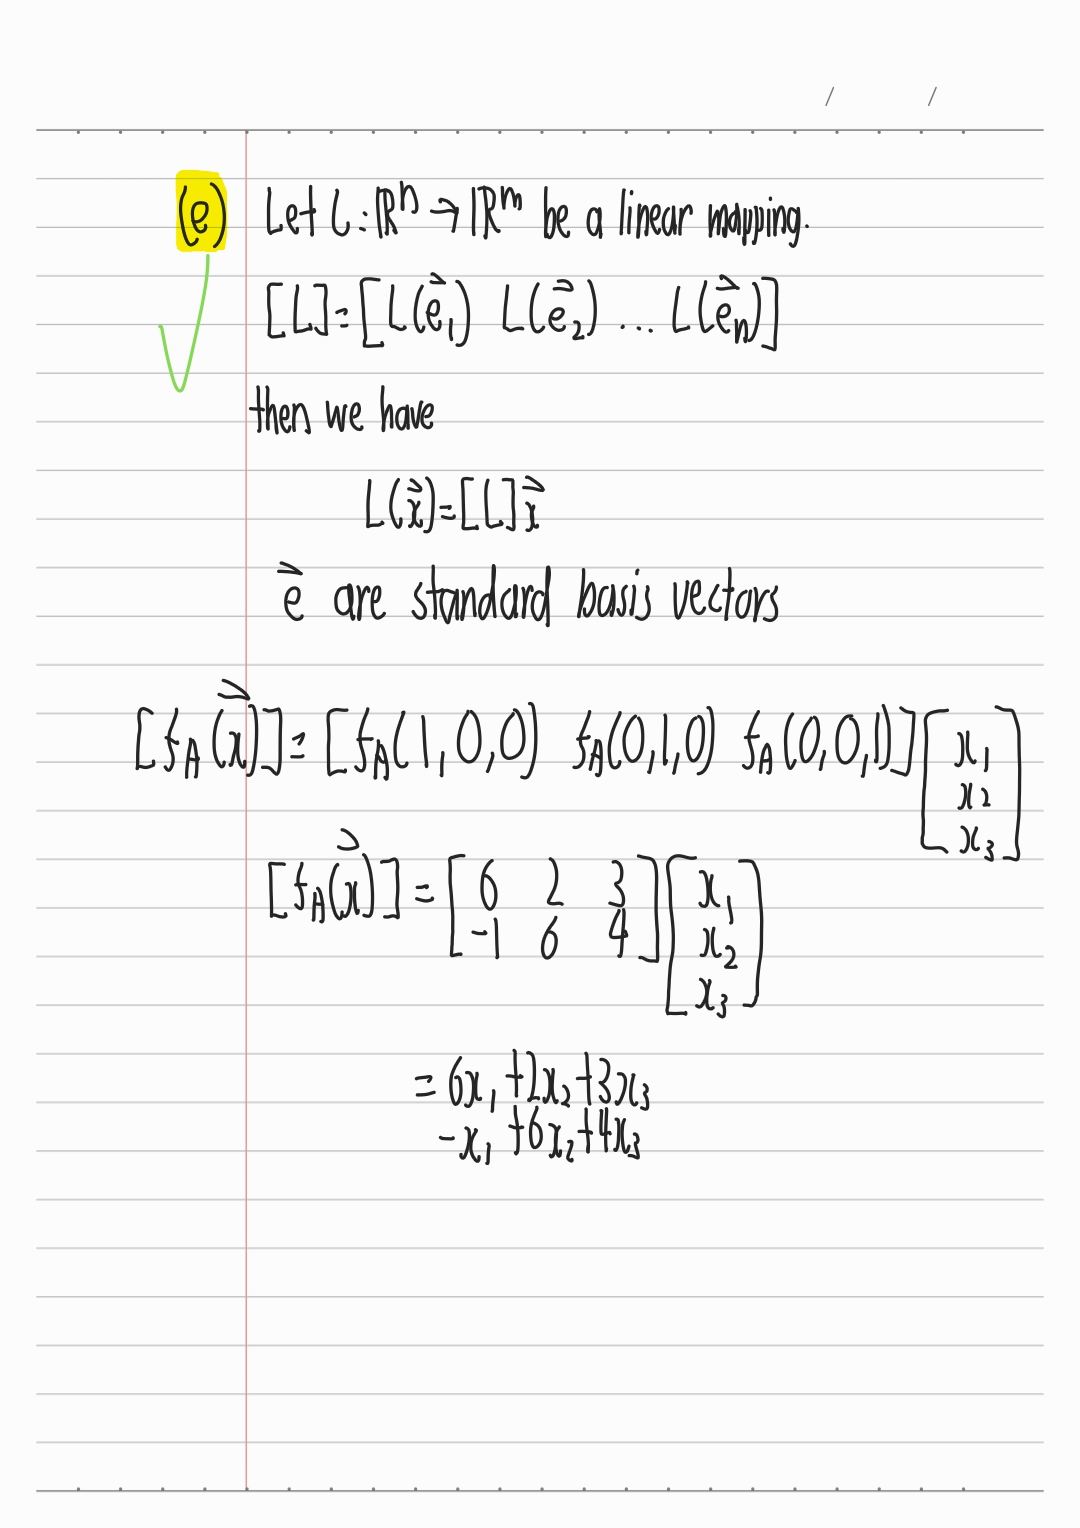 (e) Let L : ℝⁿ → ℝᵐ be a linear mapping.
[L] = [L(e⃗₁) L(e⃗₂) ... L(e⃗ₙ)]
then we have
L(x⃗) = [L]x⃗
e⃗ are standard basis vectors
[f_A(x⃗)] = [f_A(1,0,0) f_A(0,1,0) f_A(0,0,1)] [x₁
x₂
x₃]
[f_A(x⃗)] = [6 2 3] [x₁
-1 6 4 x₂
x₃]
= 6x₁ + 2x₂ + 3x₃
-x₁ + 6x₂ + 4x₃